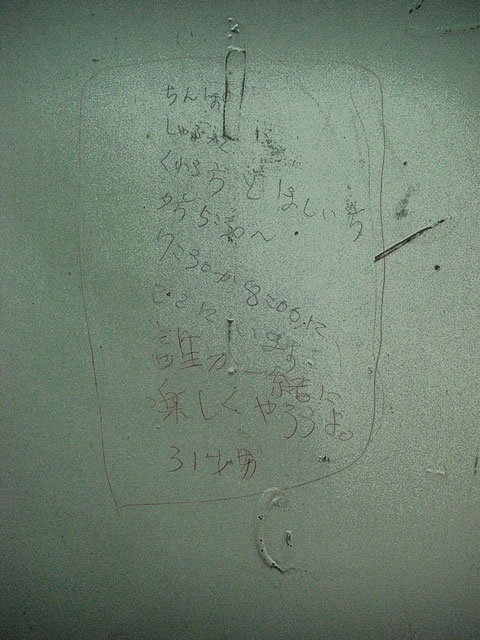 ちんぽ
しゃぶって
くれる方とほしい方
夕方5:30〜
7:30か8:00に
ここにいます
誰か一緒に
楽しくやろうよ。
31才男